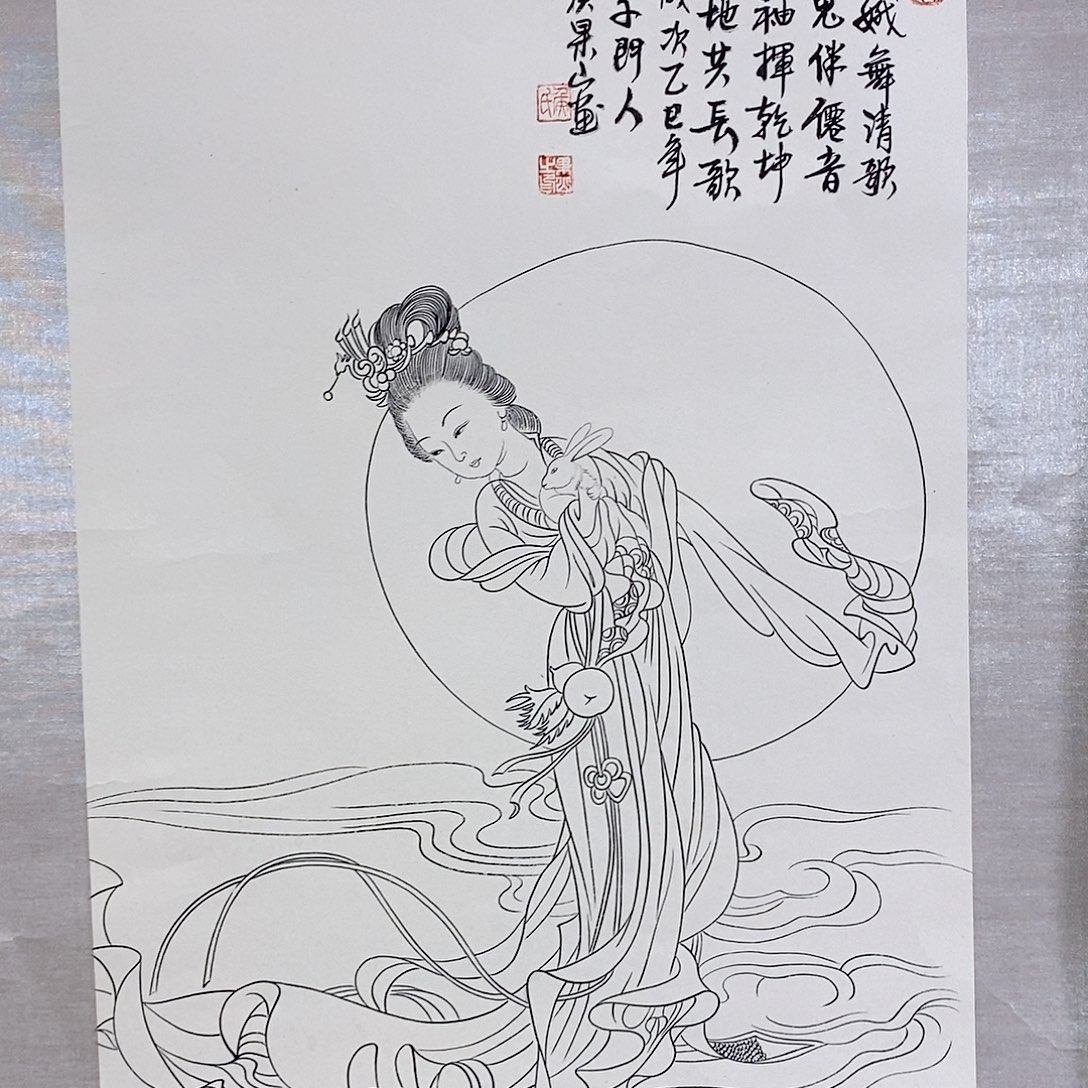 娥舞清歌
兔伴僊音
袖揮乾坤
地共長歌
歲次乙巳年
子門人
侯果山畫
侯氏